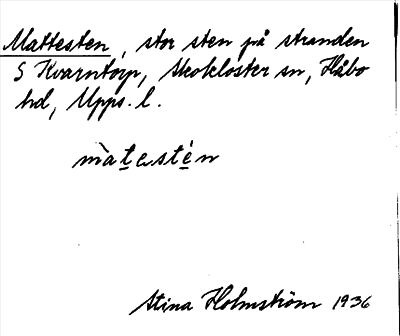 Mattesten, stor sten på stranden
S Kvarntorp, Skokloster sn, Håbo
hd, Upps. l.
màtestén
Stina Holmström 1936